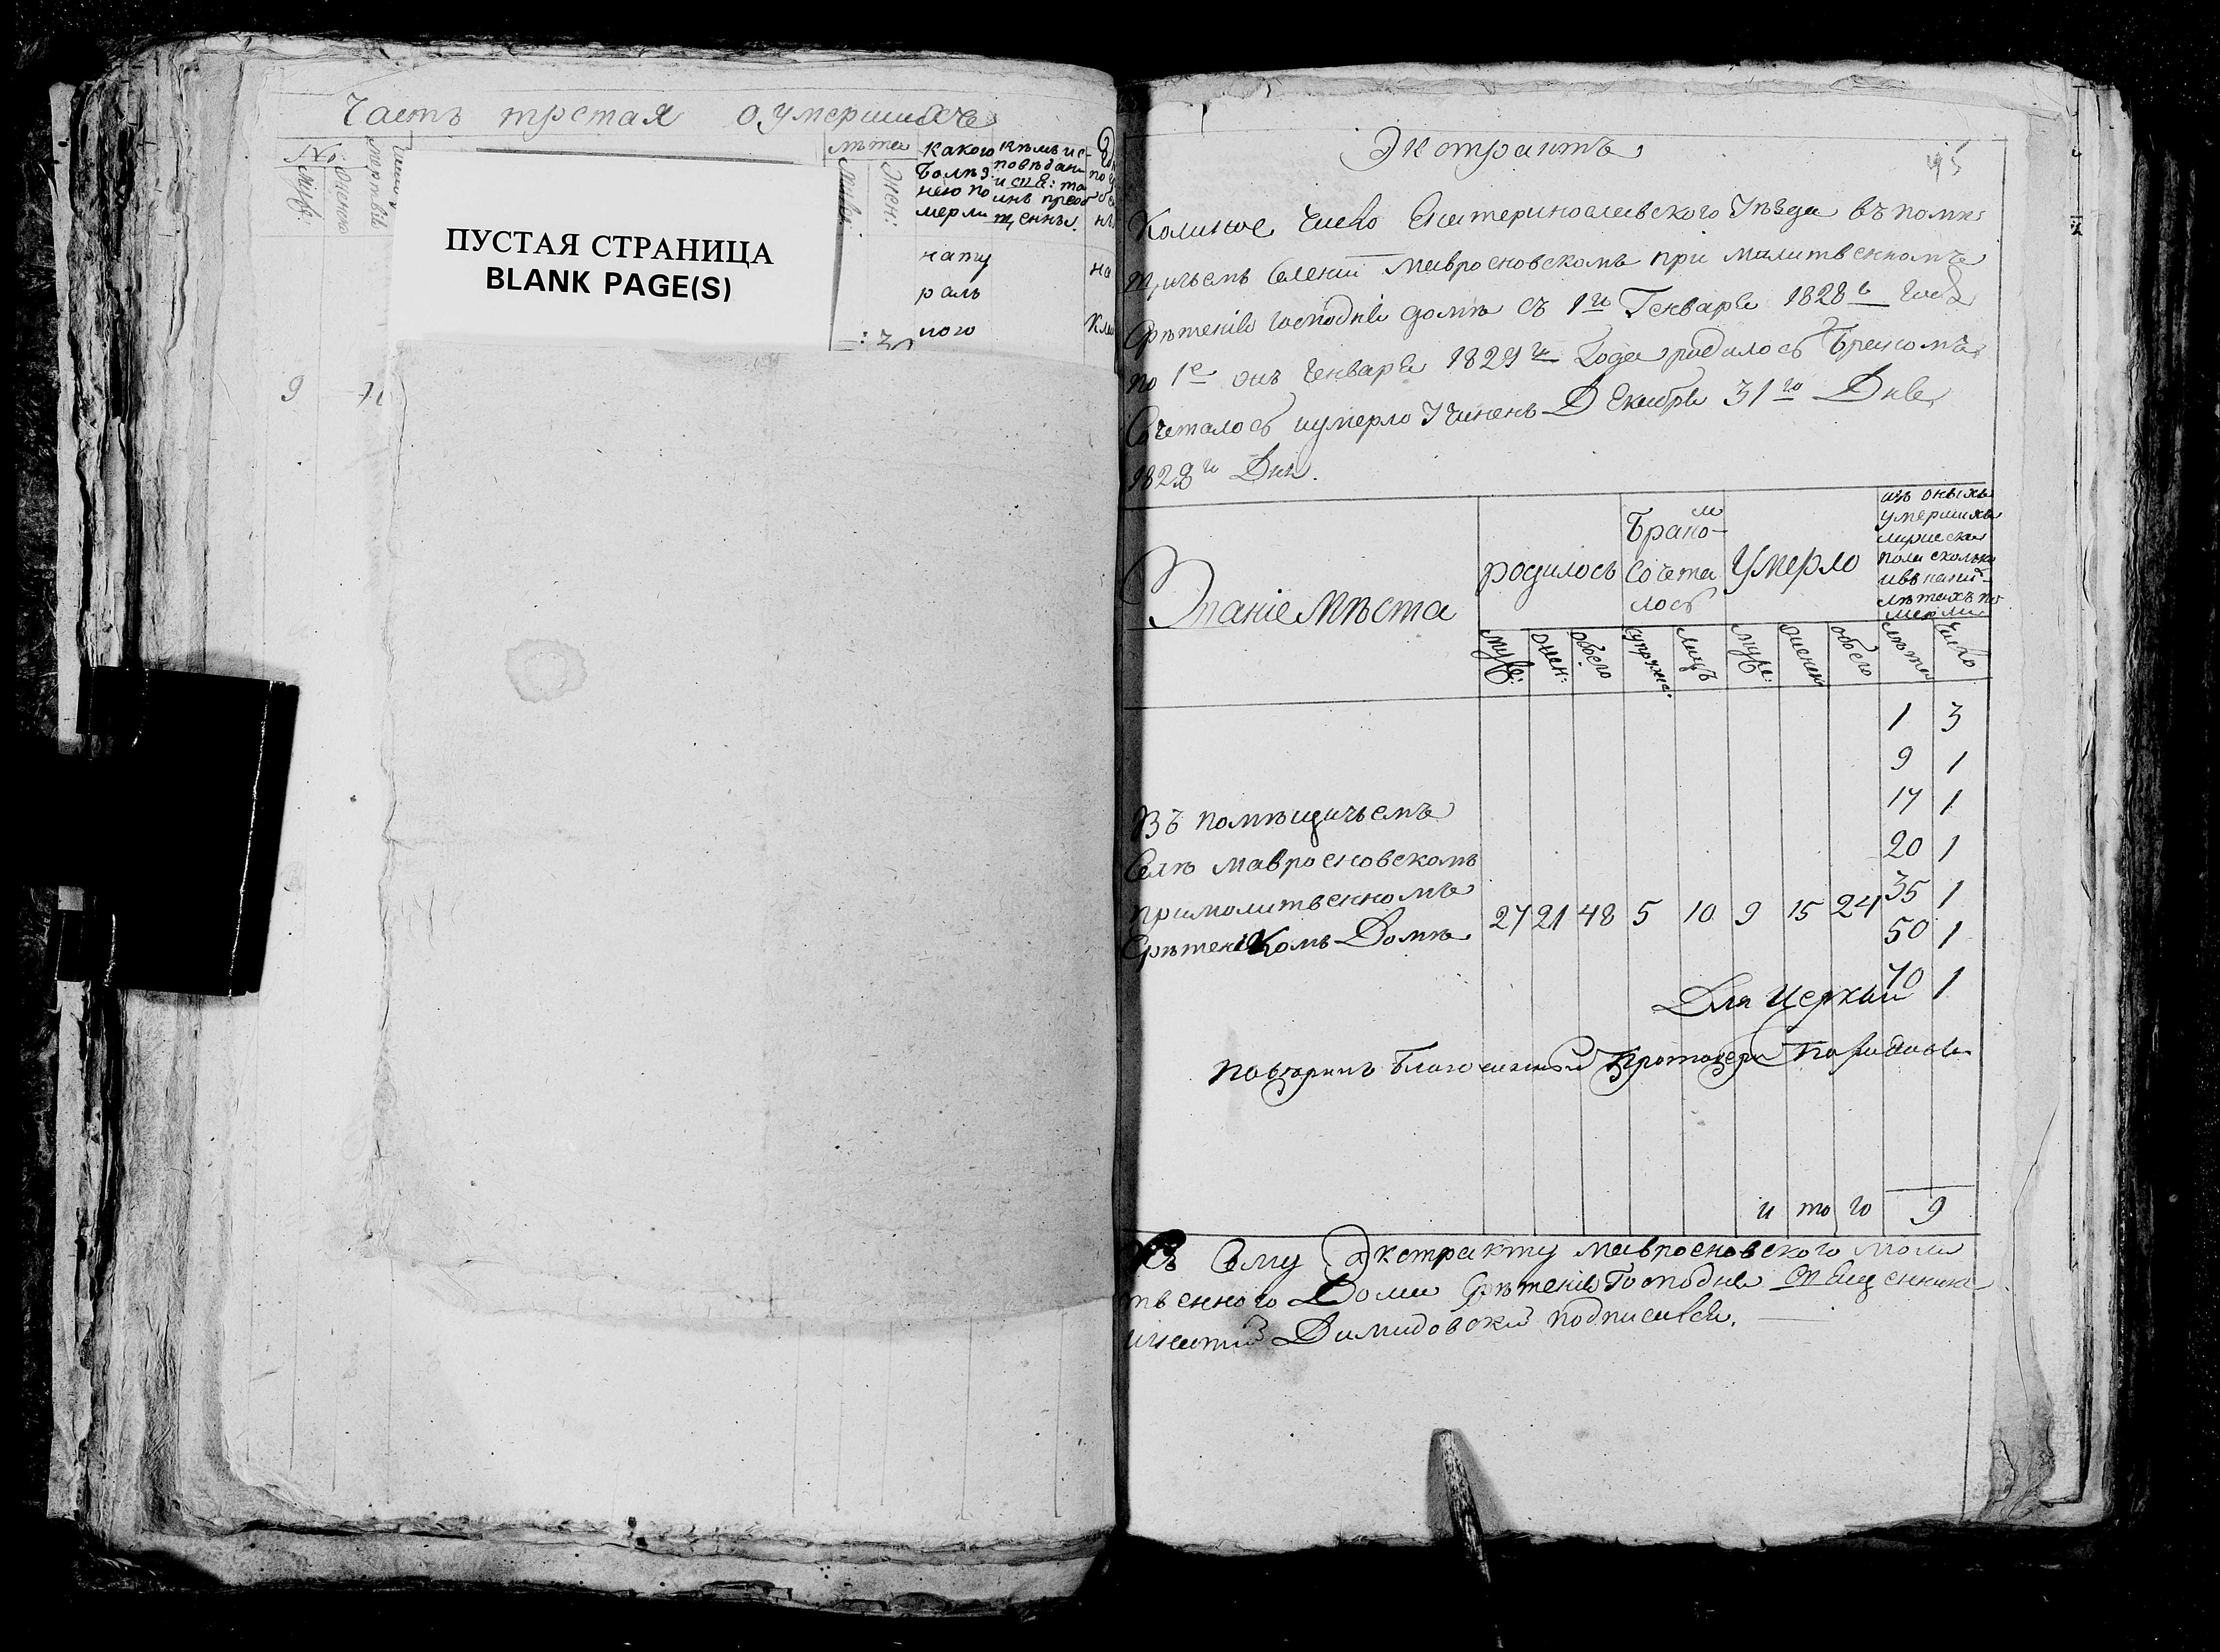 Часть третая о умершихъ
№:
муж:
женско
лѣта
муж:
жен:
какого
болѣз
нею по
мерли
кѣмъ ис-
повѣдан
и св
щенны.
нату
раль
ного
на
ПУСТАЯ СТРАНИЦА
BLANK PAGE(S)
9
Экстрактъ
Коликое Число Екатеринославского Уѣзда въ помѣ
щичьемъ Селеніи Мавроеновскомъ при Молитвенномъ
Срѣтенія Господня домѣ съ 1го Генваря 1828го Года
по 1е онъ Генваря 1829го Года родилось Бракомъ
Сочеталось и умерло Учиненъ Декабря 31го Дня
1828го Дня.
Званіе Мѣста
родилось
Брако-
м
Сочета
лось
Умерло
изъ оныхъ
умершихъ
мужеска
пола сколько
и въ какихъ
лѣтахъ по
мерли
муж:
жен:
обоего
супруже:
лицъ
муж:
женск
обоего
лѣта
число
1 3
9 1
17 1
20 1
35 1
50 1
70 1
Въ помѣщичьемъ
Селѣ Мавроеновскомъ
при молитвенномъ
Срѣтенскомъ Домѣ
27 21 48 5 10 9 15 24
Для Церкви
Повѣрилъ Благочинный Протоіерей
и то го 9
Къ Сему Экстракту Мавроеновского моли
твенного Дома Срѣтенія Господня Священникъ
Димидовскій подписался.